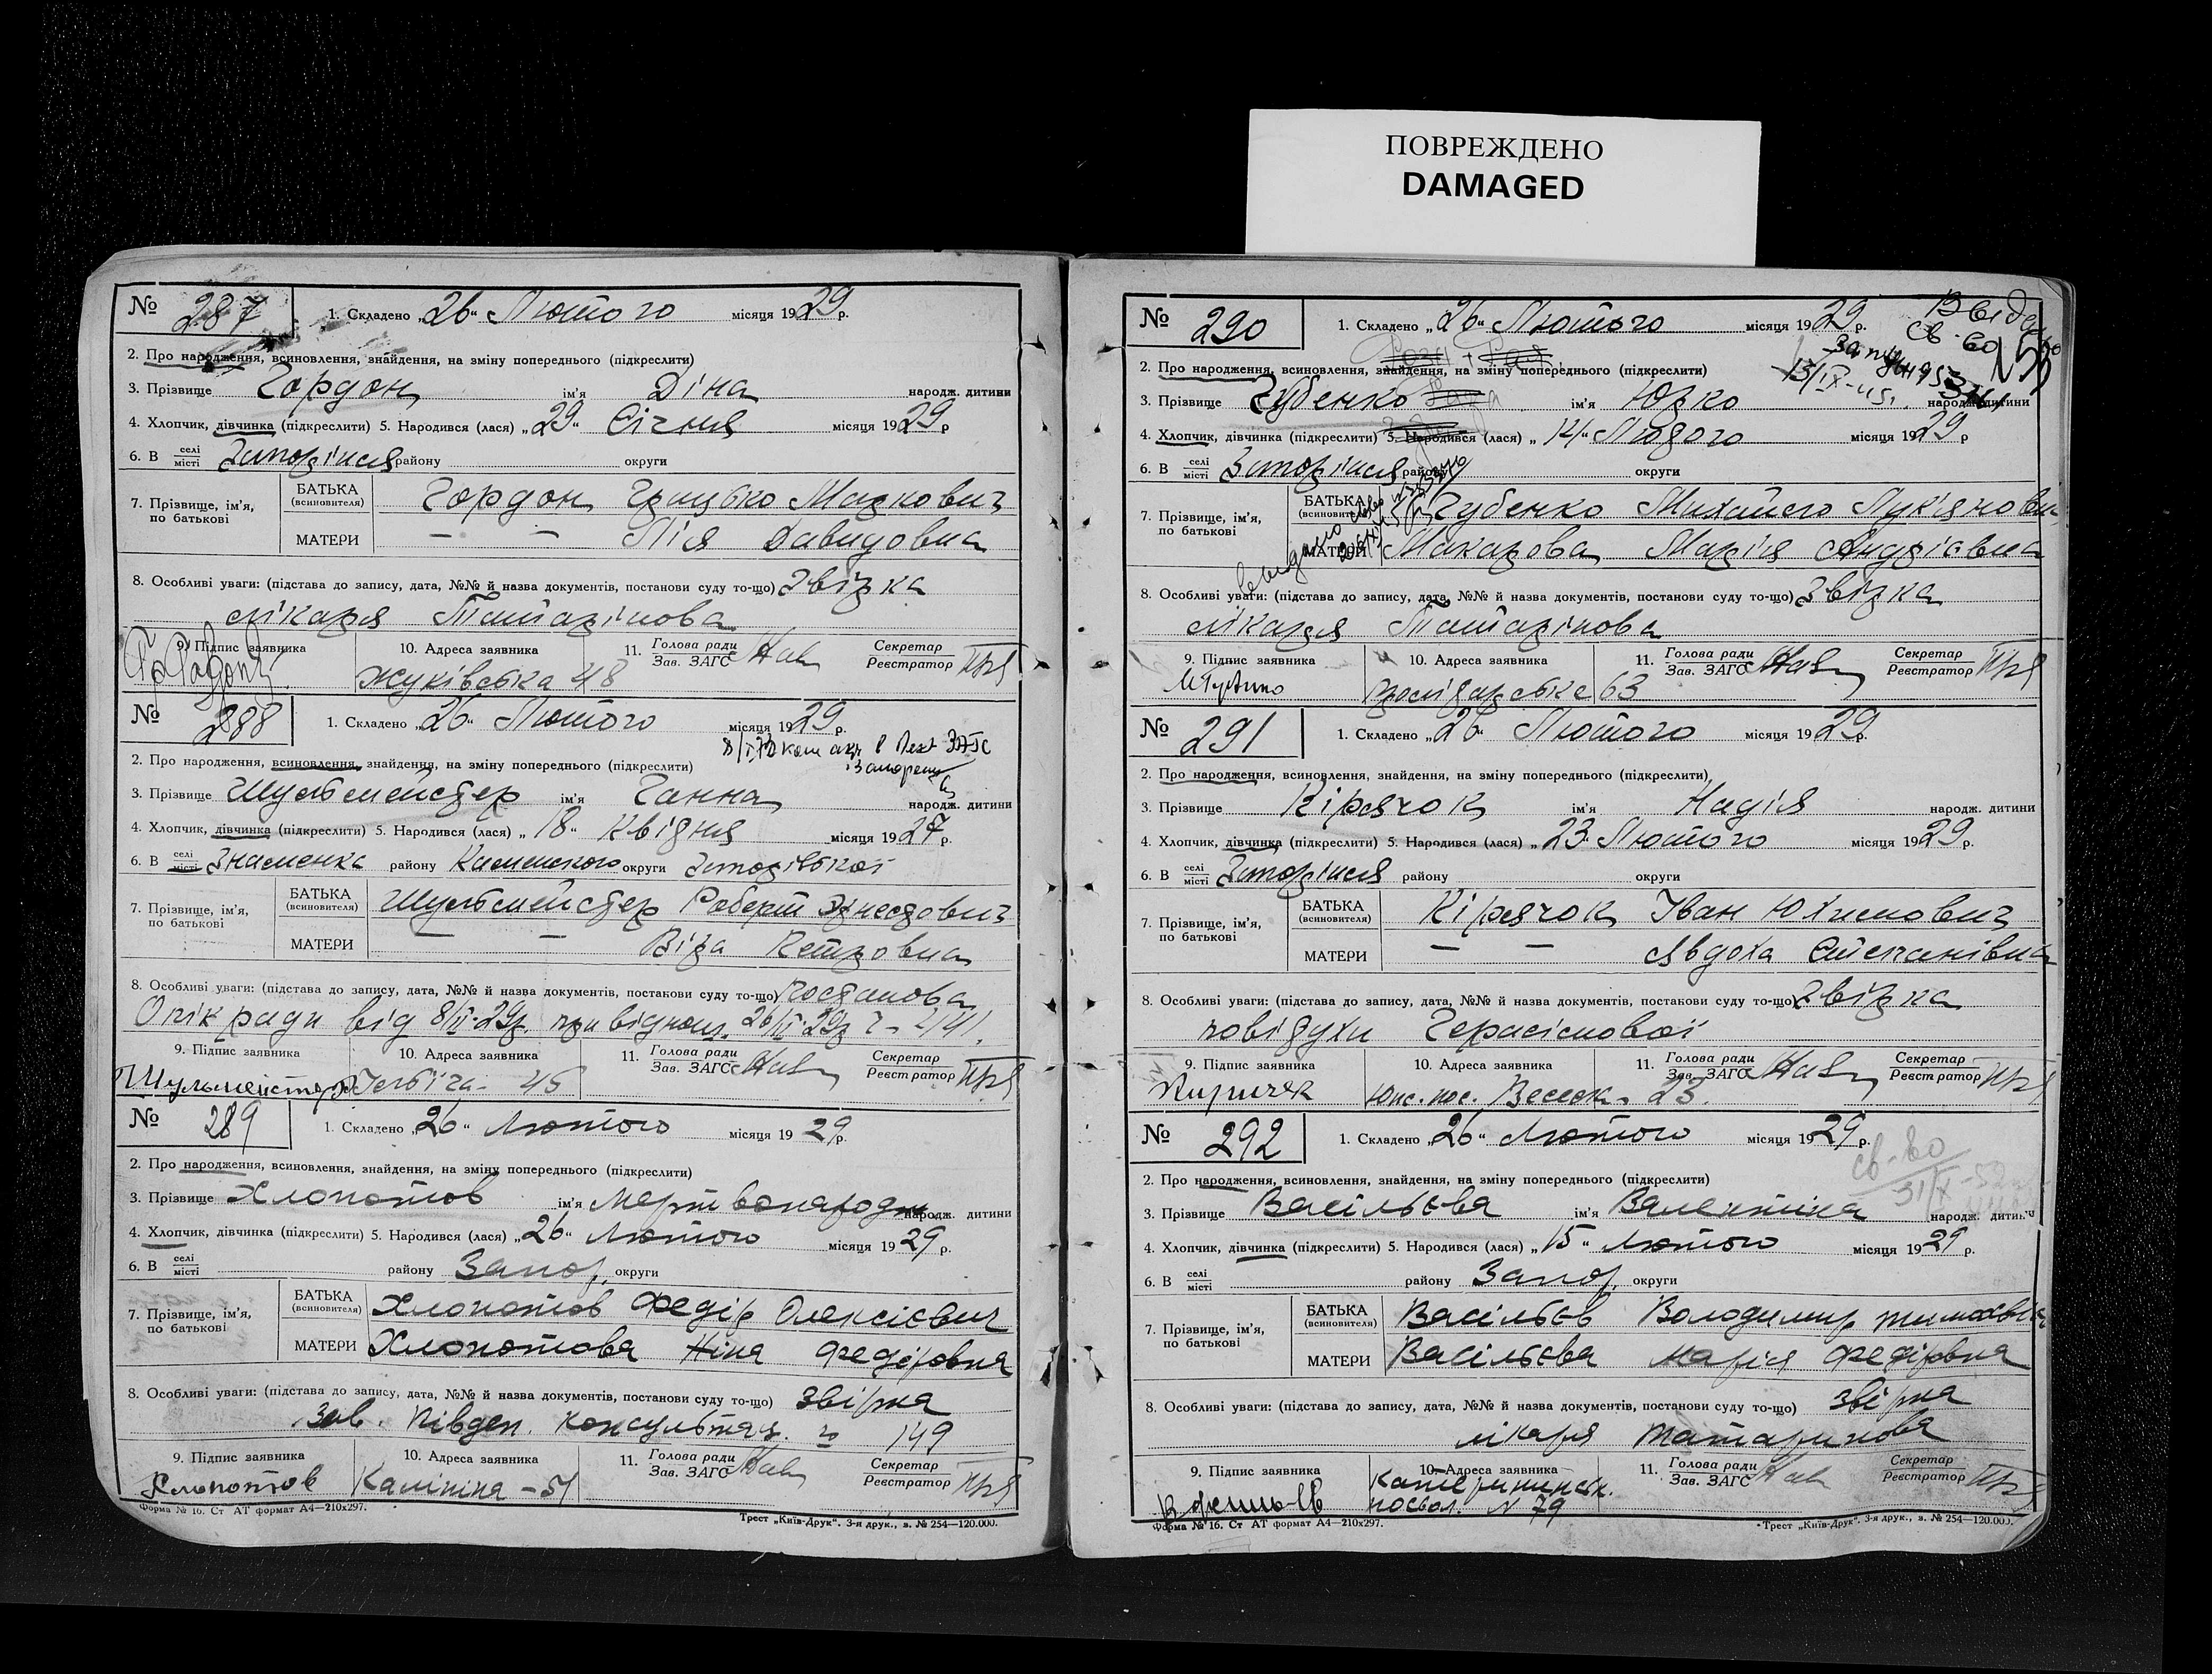 ПОВРЕЖДЕНО
DAMAGED
№ 287
1. Складено „26“ Лютого місяця 1929 р.
2. Про народження, всиновлення, знайдення, на зміну попереднього (підкреслити)
3. Прізвище Гордон ім'я Діна народж. дитини
4. Хлопчик, дівчинка (підкреслити) 5. Народився (лася) „29“ Січня місяця 1929 р
6. В селі місті Запоріжжя району округи
7. Прізвище, ім'я, по батькові
БАТЬКА (всиновителя) Гордон Грицько Маркович
МАТЕРИ — — Лія Давидовна
8. Особливі уваги: (підстава до запису, дата, №№ й назва документів, постанови суду то-що) Звірка
лікаря Татарінова
9. Підпис заявника 10. Адреса заявника 11. Голова ради Зав. ЗАГС Секретар Реєстратор
Жуківська 48
№ 288
1. Складено „26“ Лютого місяця 1929 р.
2. Про народження, всиновлення, знайдення, на зміну попереднього (підкреслити)
3. Прізвище Шульмейстер ім'я Ганна народж. дитини
4. Хлопчик, дівчинка (підкреслити) 5. Народився (лася) „18“ Квідня місяця 1927 р.
6. В селі місті Знаменка району Каменского округи Запорівської
7. Прізвище, ім'я, по батькові
БАТЬКА (всиновителя) Шульмейстер Роберт Эрнестович
МАТЕРИ — — Віра Петровна
8. Особливі уваги: (підстава до запису, дата, №№ й назва документів, постакови суду то-що) Постанова
Опік ради від 8/II-29р. при віднош. 26/II-29р
9. Підпис заявника 10. Адреса заявника 11. Голова ради Зав. ЗАГС Секретар Реєстратор
Шульмейстер 45
№ 289
1. Складено „26“ Лютого місяця 1929 р.
2. Про народження, всиновлення, знайдення, на зміну попереднього (підкреслити)
3. Прізвище Хлопотов ім'я Мертвонародж. народж. дитини
4. Хлопчик, дівчинка (підкреслити) 5. Народився (лася) „26“ Лютого місяця 1929 р.
6. В селі місті району Запор. округи
7. Прізвище, ім'я, по батькові
БАТЬКА (всиновителя) Хлопотов Федір Олексієвич
МАТЕРИ Хлопотова Ніна Федіровна
8. Особливі уваги: (підстава до запису, дата, №№ й назва документів, постанови суду то-що) звірка
Зав. Півден. Консультац. № 149
9. Підпис заявника 10. Адреса заявника 11. Голова ради Зав. ЗАГС Секретар Реєстратор
Хлопотов Калініна - 51
Форма № 16. Ст АТ формат А4—210х297.
Трест „Київ-Друк“. 3-я друк., з. № 254—120.000.
№ 290
1. Складено „26“ Лютого місяця 1929 р.
2. Про народження, всиновлення, знайдення, на зміну попереднього (підкреслити)
3. Прізвище Губенко ім'я Юрко народж. дитини
4. Хлопчик, дівчинка (підкреслити) 5. Народився (лася) „ “ Лютого місяця 1929 р
6. В селі місті Запоріжжя району округи
7. Прізвище, ім'я, по батькові
БАТЬКА (всиновителя) Губенко Михайло Лук'янович
МАТЕРИ Макарова Марія Андріївна
8. Особливі уваги: (підстава до запису, дата, №№ й назва документів, постанови суду то-що) Звірка
лікаря Татарінова
9. Підпис заявника 10. Адреса заявника 11. Голова ради Зав. ЗАГС Секретар Реєстратор
63
№ 291
1. Складено „26“ Лютого місяця 1929 р.
2. Про народження, всиновлення, знайдення, на зміну попереднього (підкреслити)
3. Прізвище Кірячок ім'я Надія народж. дитини
4. Хлопчик, дівчинка (підкреслити) 5. Народився (лася) „23“ Лютого місяця 1929 р.
6. В селі місті Запоріжжя району округи
7. Прізвище, ім'я, по батькові
БАТЬКА (всиновителя) Кірячок Іван Юхимович
МАТЕРИ — — Явдоха Степанівна
8. Особливі уваги: (підстава до запису, дата, №№ й назва документів, постакови суду то-що) Звірка
повідухи Герасімової
9. Підпис заявника 10. Адреса заявника 11. Голова ради Зав. ЗАГС Секретар Реєстратор
23.
№ 292
1. Складено „26“ Лютого місяця 1929 р.
2. Про народження, всиновлення, знайдення, на зміну попереднього (підкреслити)
3. Прізвище Васільєва ім'я Валентіна народж. дитини
4. Хлопчик, дівчинка (підкреслити) 5. Народився (лася) „15“ Лютого місяця 1929 р.
6. В селі місті району Запор. округи
7. Прізвище, ім'я, по батькові
БАТЬКА (всиновителя) Васільєв Володимир
МАТЕРИ Васільєва Марія Федіровна
8. Особливі уваги: (підстава до запису, дата, №№ й назва документів, постанови суду то-що) звірка
лікаря Татарінова
9. Підпис заявника 10. Адреса заявника 11. Голова ради Зав. ЗАГС Секретар Реєстратор
Катерининськ.
посьол. N 79
Форма № 16. Ст АТ формат А4—210х297.
Трест „Київ-Друк“. 3-я друк., з. № 254—120.000.